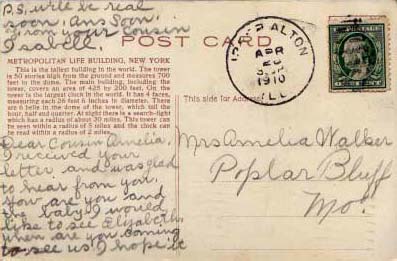 P.S. will be real
soon, ans soon,
from your cousin
Isabell
POST CARD
METROPOLITAN LIFE BUILDING, NEW YORK
This is the tallest building in the world. The tower
is 50 stories high from the ground and measures 700
feet to the dome. The main building, including the
tower, covers an area of 425 by 200 feet. On
the tower is the largest clock in the world. It has 4 faces,
measuring each 26 feet 6 inches in diameter. There
are 6 bells in the dome of the tower, which toll the
hour, half and quarter. At night there is a search-light
which has a radius of about 20 miles. This tower can
be seen within a radius of 5 miles and the clock can
be read within a radius of 2 miles.
This side for Address
ALTON
APR
1910
ILL
Dear Cousin Amelia,
I received your
letter, and was glad
to hear from you,
how are you and
the baby, I would
like to see Elizabeth,
when are you coming
to see us, I hope it
Mrs Amelia Walker
Poplar Bluff
Mo.